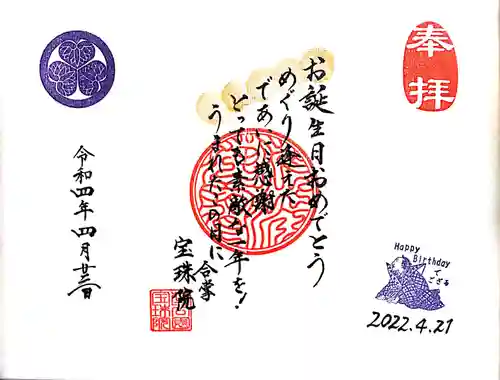 奉拝
お誕生日おめでとう
めぐり逢えた
であいに感謝
とっても素敵な一年を!
うまれたこの日に
合掌
宝珠院
令和四年四月廿二日
Happy
Birthday
で
ござる
2022.4.21